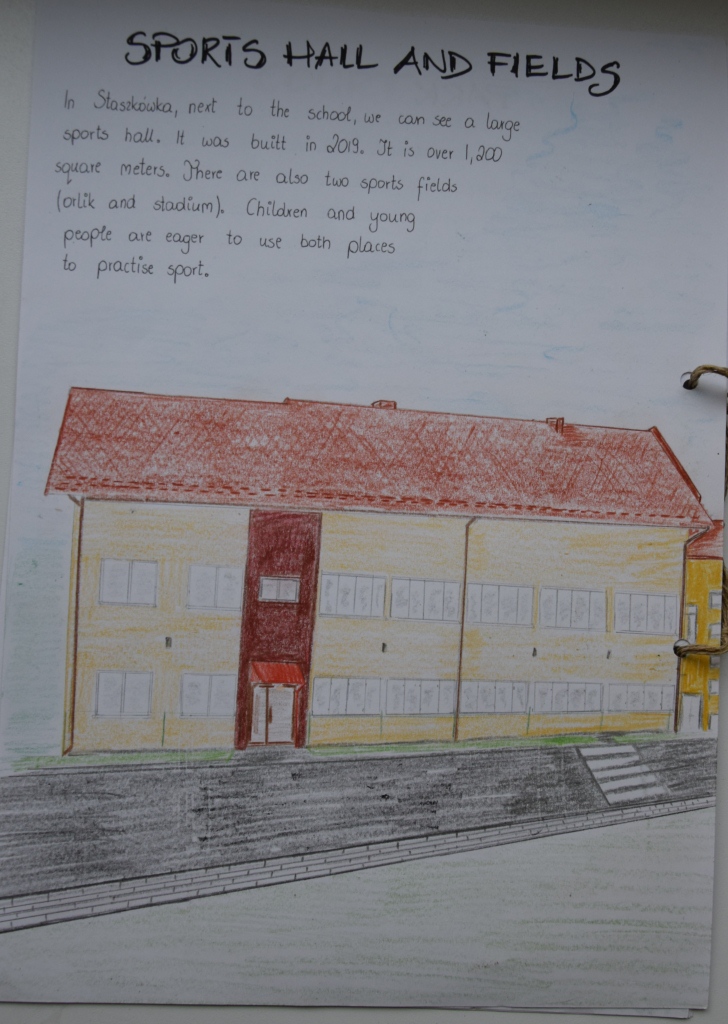 SPORTS HALL AND FIELDS
In Staszkówka, next to the school, we can see a large
sports hall. It was built in 2019. It is over 1,200
square meters. There are also two sports fields
(orlik and stadium). Children and young
people are eager to use both places
to practise sport.